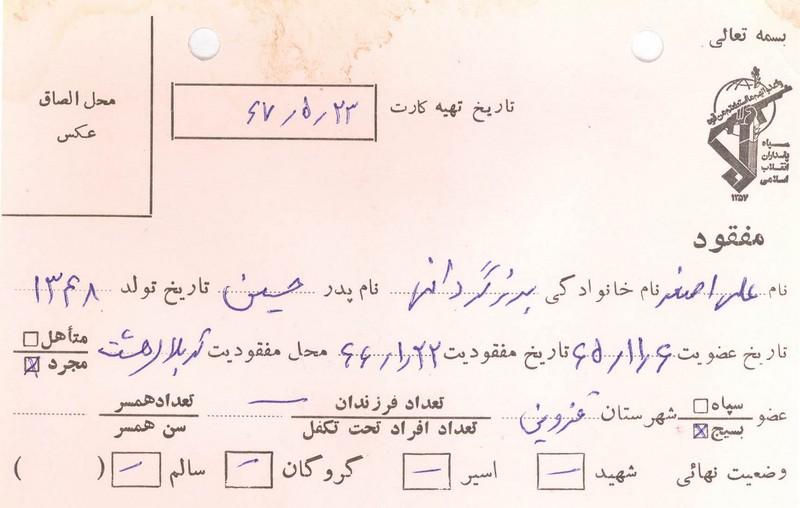 بسمه تعالی
محل الصاق
عکس
تاریخ تهیه کارت ۶۷/۵/۲۳
سپاه
پاسداران
انقلاب
اسلامی
۱۳۵۷
مفقود
نام علی اصغر نام خانوادگی نام پدر حسین تاریخ تولد ۱۳۴۸
تاریخ عضویت ۶۵/۱۱/۶ تاریخ مفقودیت ۶۶/۱/۲۲ محل مفقودیت کربلا
متأهل
مجرد
عضو سپاه
بسیج
شهرستان قزوین تعداد فرزندان —
تعداد افراد تحت تکفل
تعدادهمسر
سن همسر
وضعیت نهائی شهید — اسیر — گروگان — سالم — ( )